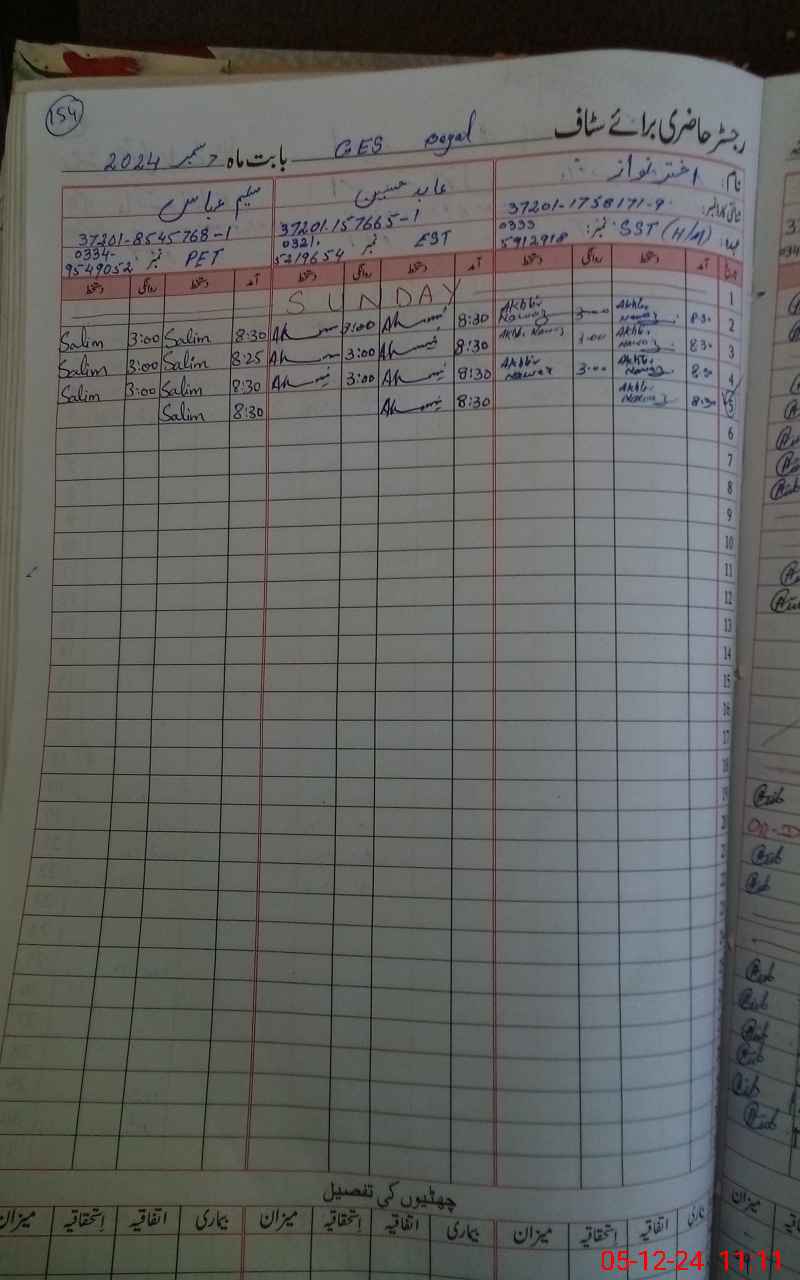 154
رجسٹر حاضری برائے سٹاف
GES بابت ماہ دسمبر 2024
نام: اختر نواز عابد حسین سلیم عباس
37201-1758171-9 37201-157665-1 37201-8545768-1
SST (H/M) نمبر: 0333 5912918 EST نمبر 0321. 5219654 PET نمبر 0334-9549052
آمد دستخط روانگی دستخط آمد دستخط روانگی دستخط آمد دستخط روانگی دستخط
1 SUNDAY
2 8:30 Akhtr. Nawaz 3:00 Akhtr. Nawaz 8:30 3:00 8:30 Salim 3:00 Salim
3 8:30 Akhtr. Nawaz 3:00 Akhtr. Nawaz 8:30 3:00 8:25 Salim 3:00 Salim
4 8:30 Akhtr. Nawaz 3:00 Akhtr. Nawaz 8:30 3:00 8:30 Salim 3:00 Salim
5 8:30 Akhtr. Nawaz 8:30 8:30 Salim
6
7
8
9
10
11
12
13
14
15
16
17
18
19
چھٹیوں کی تفصیل
بیماری اتفاقیہ استحقاقیہ میزان بیماری اتفاقیہ استحقاقیہ میزان بیماری اتفاقیہ استحقاقیہ میزان
05-12-24 11:11